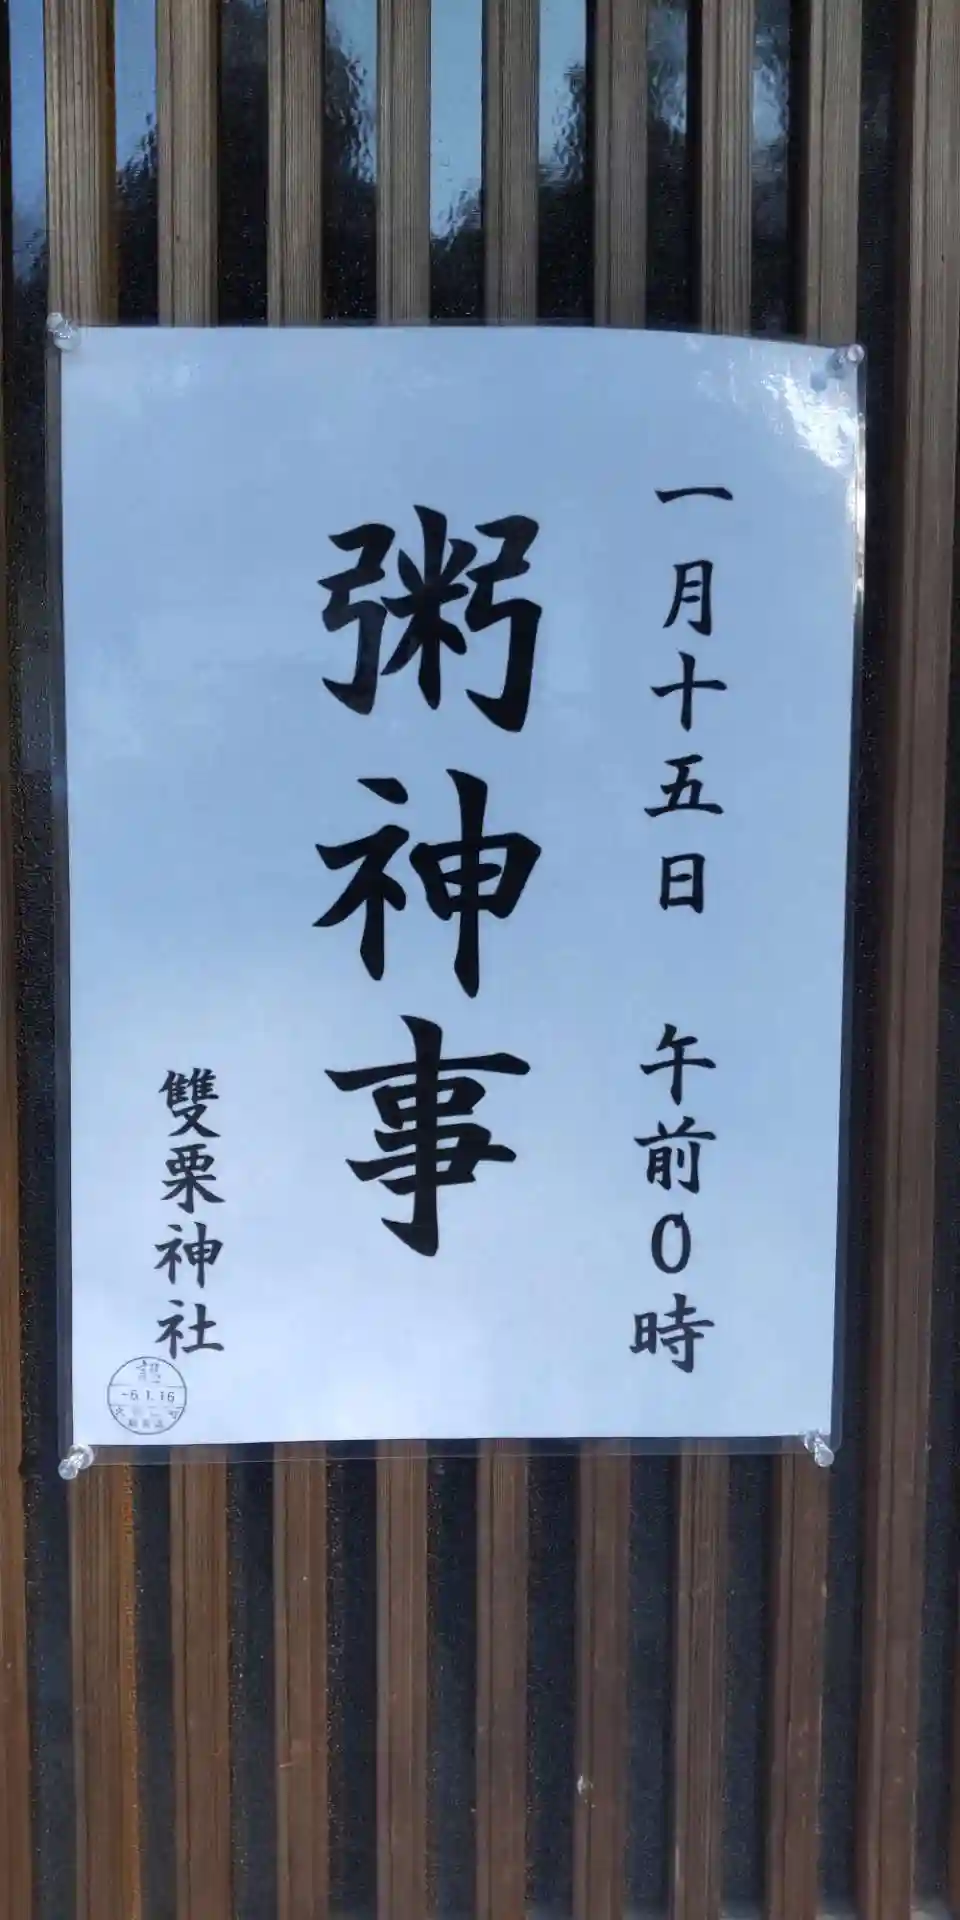 一月十五日 午前0時
粥神事
雙栗神社
-6.1.16